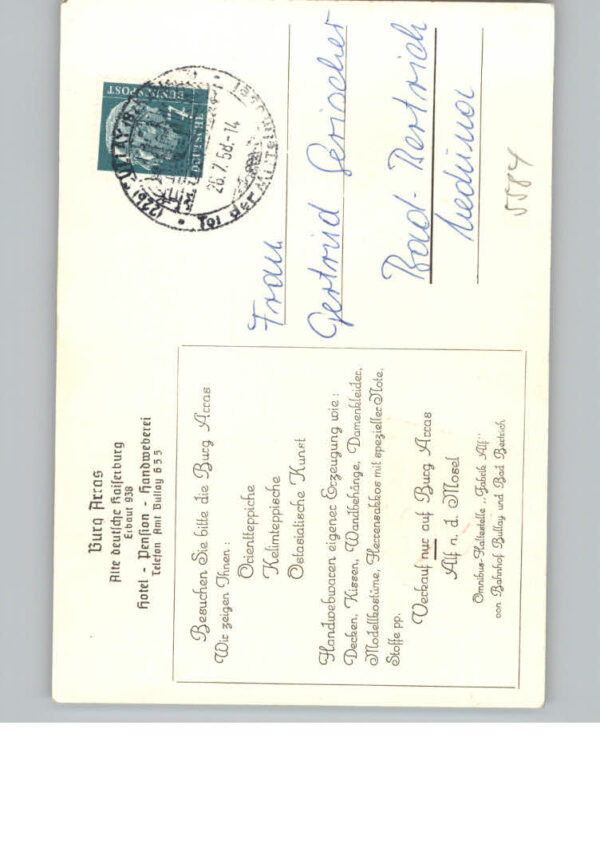 Burg Arras
Alte deutsche Kaiserburg
Erbaut 938
Hotel - Pension - Handweberei
Telefon Amt Bullay 655
Besuchen Sie bitte die Burg Arras
Wir zeigen Ihnen:
Orientteppiche
Kelimteppische
Ostasiatische Kunst
Handwebwaren eigener Erzeugung wie:
Decken, Kissen, Wandbehänge, Damenkleider,
Modellkostüme, Herrensakkos mit spezieller Note,
Stoffe pp.
Verkauf nur auf Burg Arras
Alf n. d. Mosel
Omnibus-Haltestelle „Fabrik Alf"
von Bahnhof Bullay und Bad Bertrich
DEUTSCHE
BUNDESPOST
7
(22b) BULLAY
26.7.58.-14
Tor der Mittel
Frau
Gertrud Gerischer
Bad-Bertrich
Medina
5584